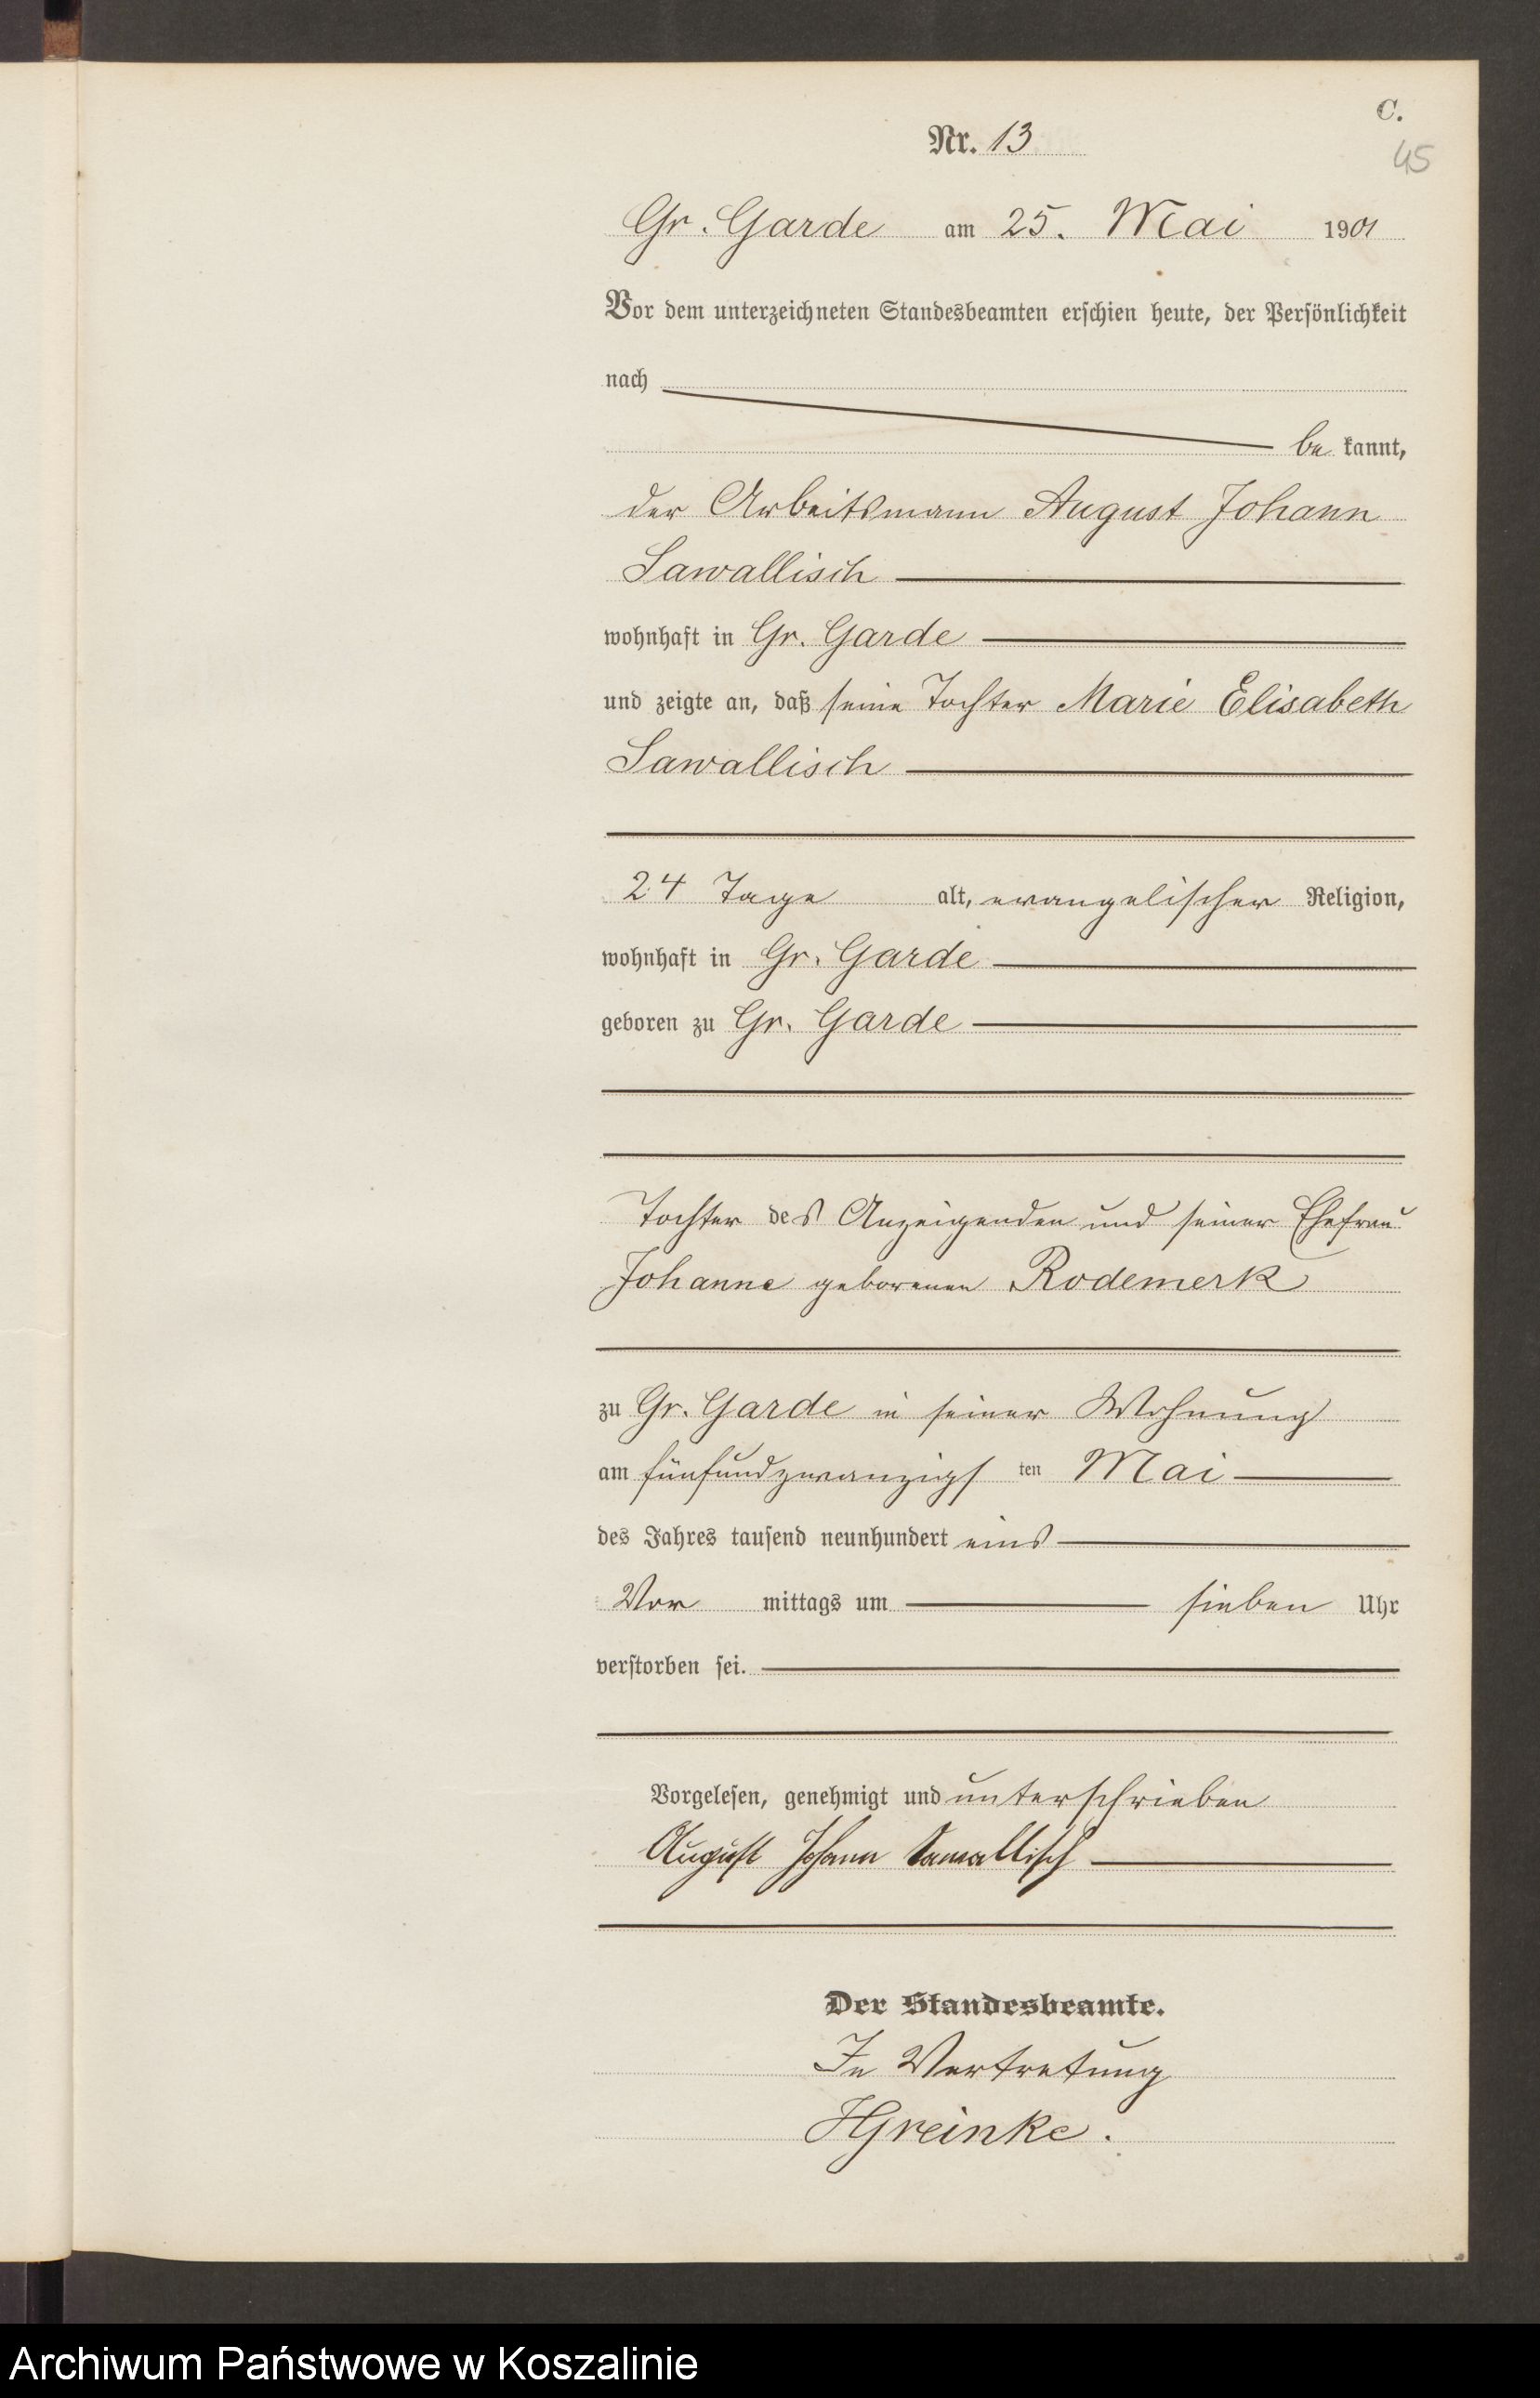 C.
45
Nr. 13
Gr. Garde am 25. Mai 1901
Vor dem unterzeichneten Standesbeamten erschien heute, der Persönlichkeit
nach
be kannt,
der Arbeitsmann August Johann
Sawallisch
wohnhaft in Gr. Garde
und zeigte an, daß seine Tochter Marie Elisabeth
Sawallisch
24 Tage alt, evangelischer Religion,
wohnhaft in Gr. Garde
geboren zu Gr. Garde
Tochter des Anzeigenden und seiner Ehefrau
Johanne geborenen Rodemerk
zu Gr. Garde in seiner Wohnung
am fünfundzwanzigs ten Mai
des Jahres tausend neunhundert eins
Vor mittags um sieben Uhr
verstorben sei.
Vorgelesen, genehmigt und unterschrieben
August Johann Sawallisch
Der Standesbeamte.
In Vertretung
HGreinke.
Archiwum Państwowe w Koszalinie